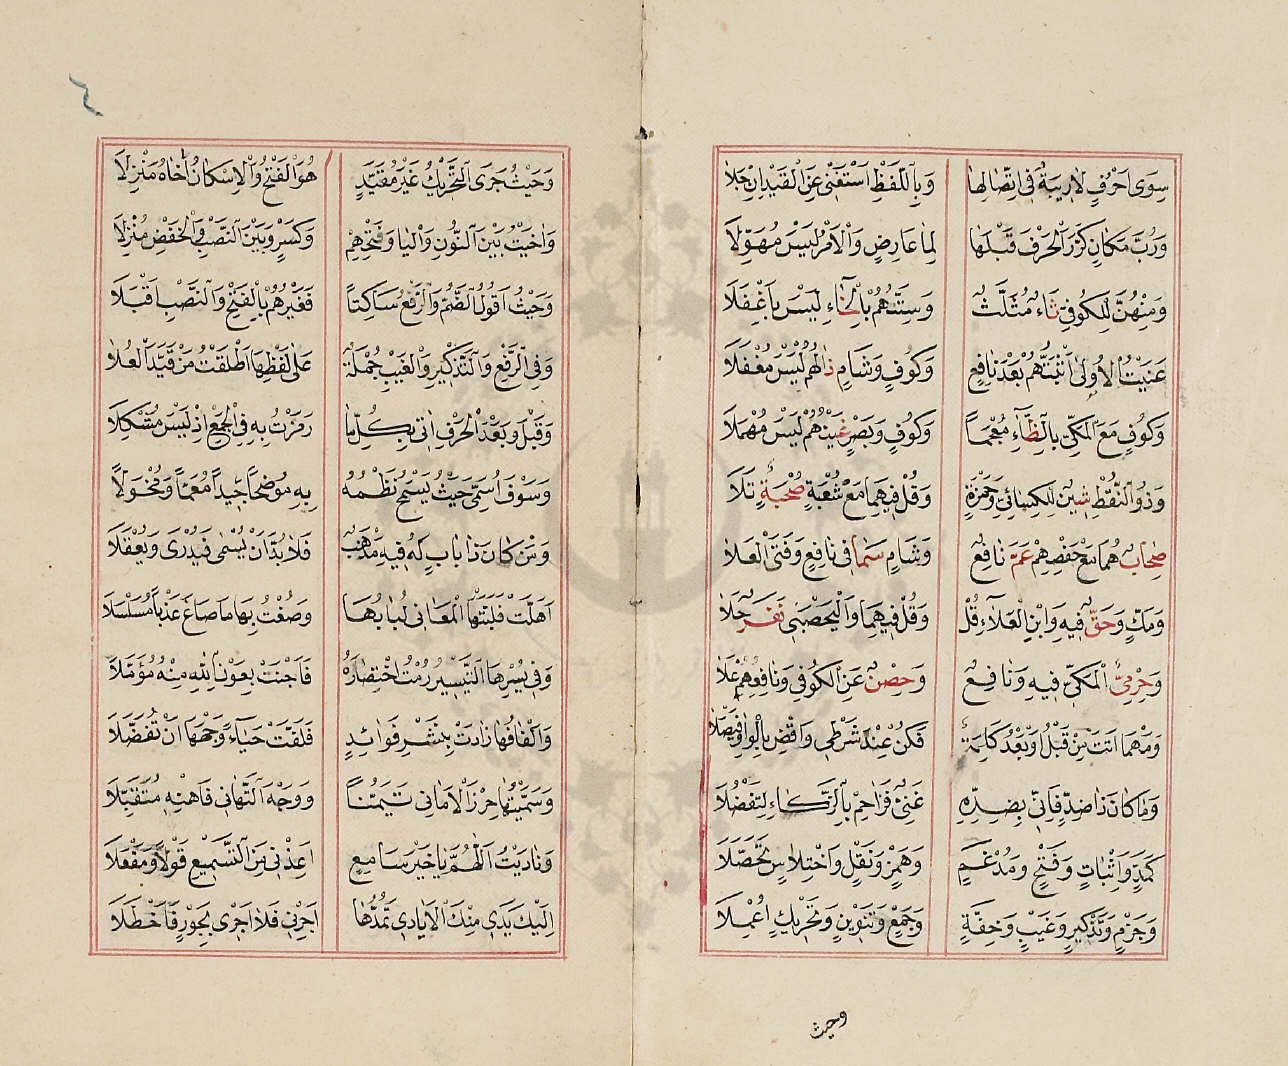 سِوَى اَحْرُفٍ لَا رِيبَةٌ فِى اتِّصَالِهَا وَبِاللَّفْظِ اَسْتَغْنِى عَنِ الْقَيْدِ اِنْ جَلَا
وَرُبَّ مَكَانٍ كَرَّرَ الْحَرْفَ قَبْلَهَا لِمَا عَارِضٍ وَالْاَمْرُ لَيْسَ مُهَوِّلَا
وَمِنْهُنَّ لِلْكُوفِيِّ ثَاءٌ مُثَلَّثٌ وَسِتَّتُهُمْ بِالْخَاءِ لَيْسَ بِاَغْفَلَا
عَنَيْتُ الْاُولَى اَثْبَتُّهُمْ بَعْدَ نَافِعٍ وَكُوفٍ وَشَامٍ ذَالُهُمْ لَيْسَ مُغْفَلَا
وَكُوفٍ مَعَ الْمَكِّيِّ بِالظَّاءِ مُعْجَمًا وَكُوفٍ وَبَصْرٍ غَيْنُهُمْ لَيْسَ مُهْمَلَا
وَذُو النَّقْطِ شِينٌ لِلْكِسَائِى وَحَمْزَةٍ وَقُلْ فِيهِمَا مَعْ شُعْبَةٍ صُحْبَةٌ تَلَا
صِحَابٌ هُمَا مَعْ حَفْصِهِمْ عَمَّ نَافِعٌ وَشَامٍ سَمَا فِى نَافِعٍ وَفَتَى الْعَلَا
وَمَكٍّ وَحَقٌّ فِيهِ وَابْنِ الْعَلَاءِ قُلْ وَقُلْ فِيهِمَا وَالْيَحْصَبِى نَفَرٌ حَلَا
وَحِرْمِىٌّ الْمَكِّىُّ فِيهِ وَنَافِعٌ وَحِصْنٌ عَنِ الْكُوفِى وَنَافِعُهُمْ عَلَا
وَمَهْمَا اَتَتْ مِنْ قَبْلُ اَوْ بَعْدُ كِلْمَةٌ فَكُنْ عِنْدَ شَرْطِى وَاقْضِ بِالْوَاوِ فَيْصَلَا
وَمَا كَانَ ذَا ضِدٍّ فَاِنِّى بِضِدِّهِ غَنِىٌّ فَزَاحِمْ بِالذَّكَاءِ لِتَفْضُلَا
كَمَدٍّ وَاِثْبَاتٍ وَفَتْحٍ وَمُدْغَمٍ وَهَمْزٍ وَنَقْلٍ وَاخْتِلَاسٍ تَحَصَّلَا
وَجَزْمٍ وَتَذْكِيرٍ وَغَيْبٍ وَخِفَّةٍ وَجَمْعٍ وَتَنْوِينٍ وَتَحْرِيكٍ اُعْمِلَا
وحيث
وَحَيْثُ جَرَى التَّحْرِيكُ غَيْرَ مُقَيَّدٍ هُوَ الْفَتْحُ وَالْاِسْكَانُ اٰخَاهُ مَنْزِلَا
وَاٰخَيْتُ بَيْنَ النُّونِ وَالْيَا وَفَتْحِهِمْ وَكَسْرٍ وَبَيْنَ النَّصْبِ وَالْخَفْضِ مُنْزِلَا
وَحَيْثُ اَقُولُ الضَّمُّ وَالرَّفْعُ سَاكِتًا فَغَيْرُهُمْ بِالْفَتْحِ وَالنَّصْبِ اَقْبَلَا
وَفِى الرَّفْعِ وَالتَّذْكِيرِ وَالْغَيْبِ جُمْلَةٌ عَلَى لَفْظِهَا اَطْلَقْتُ مَنْ قَيَّدَ الْعُلَا
وَقَبْلَ وَبَعْدَ الْحَرْفِ اٰتِى بِكُلِّ مَا رَمَزْتُ بِهِ فِى الْجَمْعِ اِذْ لَيْسَ مُشْكِلَا
وَسَوْفَ اُسَمِّى حَيْثُ يَسْمَحُ نَظْمُهُ بِهِ مُوضِحًا جِيدًا مُعَمًّا وَمُخْوَلَا
وَمَنْ كَانَ ذَا بَابٍ لَهُ فِيهِ مَذْهَبٌ فَلَا بُدَّ اَنْ يُسْمَى فَيُدْرَى وَيُعْقَلَا
اَهَلَّتْ فَلَبَّتْهَا الْمَعَانِى لُبَابُهَا وَصُغْتُ بِهَا مَا صَاغَ عَذْبًا مُسَلْسَلَا
وَفِى يُسْرِهَا التَّيْسِيرُ رُمْتُ اخْتِصَارَهُ فَاَجْنَتْ بِعَوْنِ اللّٰهِ مِنْهُ مُؤَمَّلَا
وَاَلْفَافُهَا زَادَتْ بِنَشْرِ فَوَائِدٍ فَلَفَّتْ حَيَاءً وَجْهَهَا اَنْ تُفَضَّلَا
وَسَمَّيْتُهَا حِرْزَ الْاَمَانِى تَيَمُّنًا وَوَجْهَ التَّهَانِى فَاهْنِهِ مُتَقَبِّلَا
وَنَادَيْتُ اَللّٰهُمَّ يَا خَيْرَ سَامِعٍ اَعِذْنِى مِنَ التَّسْمِيعِ قَوْلًا وَمَفْعَلَا
اِلَيْكَ يَدِى مِنْكَ الْاَيَادِى تَمُدُّهَا اَجِرْنِى فَلَا اَجْرِى بِجَوْرٍ فَاَخْطَلَا